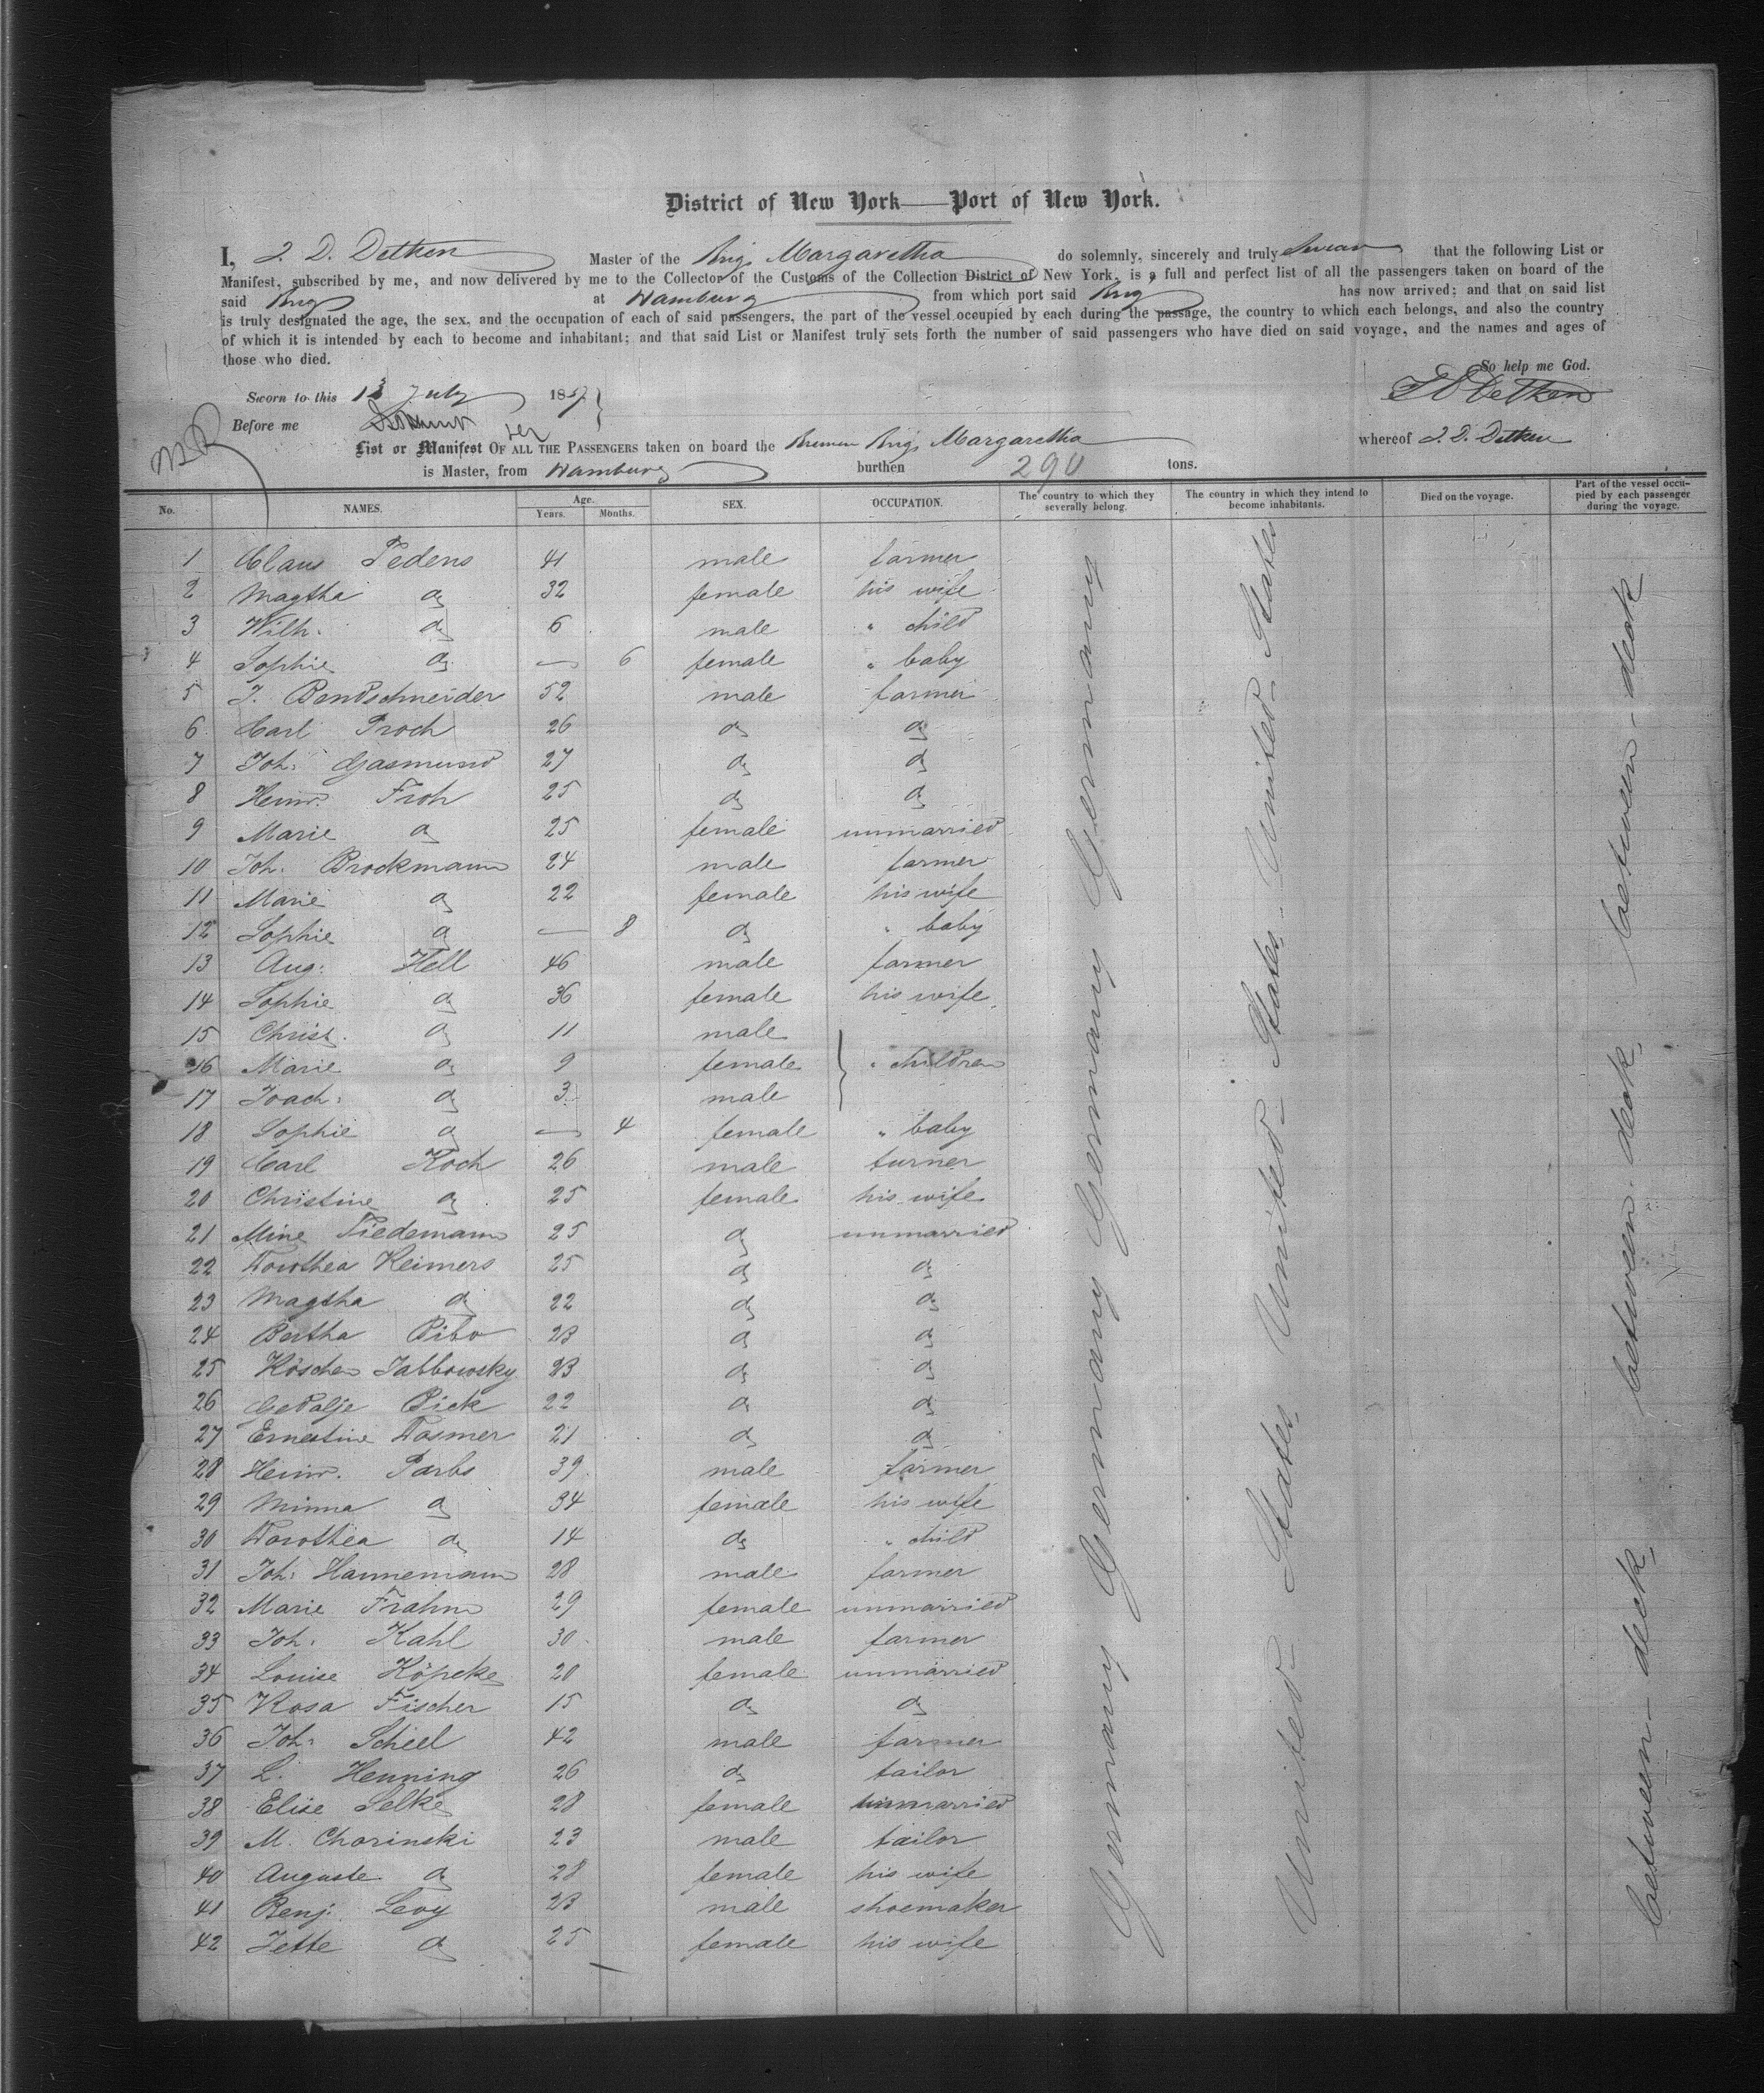 District of New York—Port of New York.
I, J. D. Detken Master of the Brig Margaretha do solemnly, sincerely and truly Swear that the following List or
Manifest, subscribed by me, and now delivered by me to the Collector of the Customs of the Collection District of New York, is a full and perfect list of all the passengers taken on board of the
said Brig at Hamburg from which port said Brig has now arrived; and that on said list
is truly designated the age, the sex, and the occupation of each of said passengers, the part of the vessel occupied by each during the passage, the country to which each belongs, and also the country
of which it is intended by each to become and inhabitant; and that said List or Manifest truly sets forth the number of said passengers who have died on said voyage, and the names and ages of
those who died.
So help me God.
Sworn to this 13 July 1857 J D Detken
Before me
List or Manifest OF ALL THE PASSENGERS taken on board the Bremen Brig Margaretha whereof J. D. Detken
is Master, from Hamburg burthen 290 tons.
No. NAMES. Age. Years. Months. SEX. OCCUPATION. The country to which they severally belong. The country in which they intend to become inhabitants. Died on the voyage. Part of the vessel occupied by each passenger during the voyage.
1 Claus Pedens 41 male farmer
2 Magtha do 32 female his wife
3 Wilh. do 6 male " child
4 Sophie do — 6 female " baby
5 J. Bandschneider 52 male farmer
6 Carl Proch 26 do do
7 Joh: Gasmund 27 do do
8 Heinr. Froh 25 do do
9 Marie do 25 female unmarried
10 Joh: Brockmann 24 male farmer
11 Marie do 22 female his wife
12 Sophie do — 8 do " baby
13 Aug: Hell 46 male farmer
14 Sophie do 36 female his wife
15 Christ. do 11 male
16 Marie do 9 female " children
17 Joach: do 3 male
18 Sophie do — 4 female " baby
19 Carl Koch 26 male turner
20 Christine do 25 female his wife
21 Mine Tiedemann 25 do unmarried
22 Dorothea Reimers 25 do do
23 Magtha do 22 do do
24 Bertha Bibo 23 do do
25 Röschen Jabbowsky 23 do do
26 Gedalje Pick 22 do do
27 Ernestine Dosmer 21 do do
28 Heinr. Parbs 39 male farmer
29 Minna do 34 female his wife
30 Dorothea do 14 do " child
31 Joh: Hannemann 28 male farmer
32 Marie Frahm 29 female unmarried
33 Joh: Kahl 30 male farmer
34 Louise Köpcke 20 female unmarried
35 Rosa Fischer 15 do do
36 Joh: Scheel 42 male farmer
37 L. Henning 26 do tailor
38 Elise Selke 28 female unmarried
39 M. Chorinski 23 male tailor
40 Auguste do 28 female his wife
41 Benj. Levy 23 male shoemaker
42 Jette do 25 female his wife
Germany Germany Germany Germany
United States United States United States
between deck between deck between deck